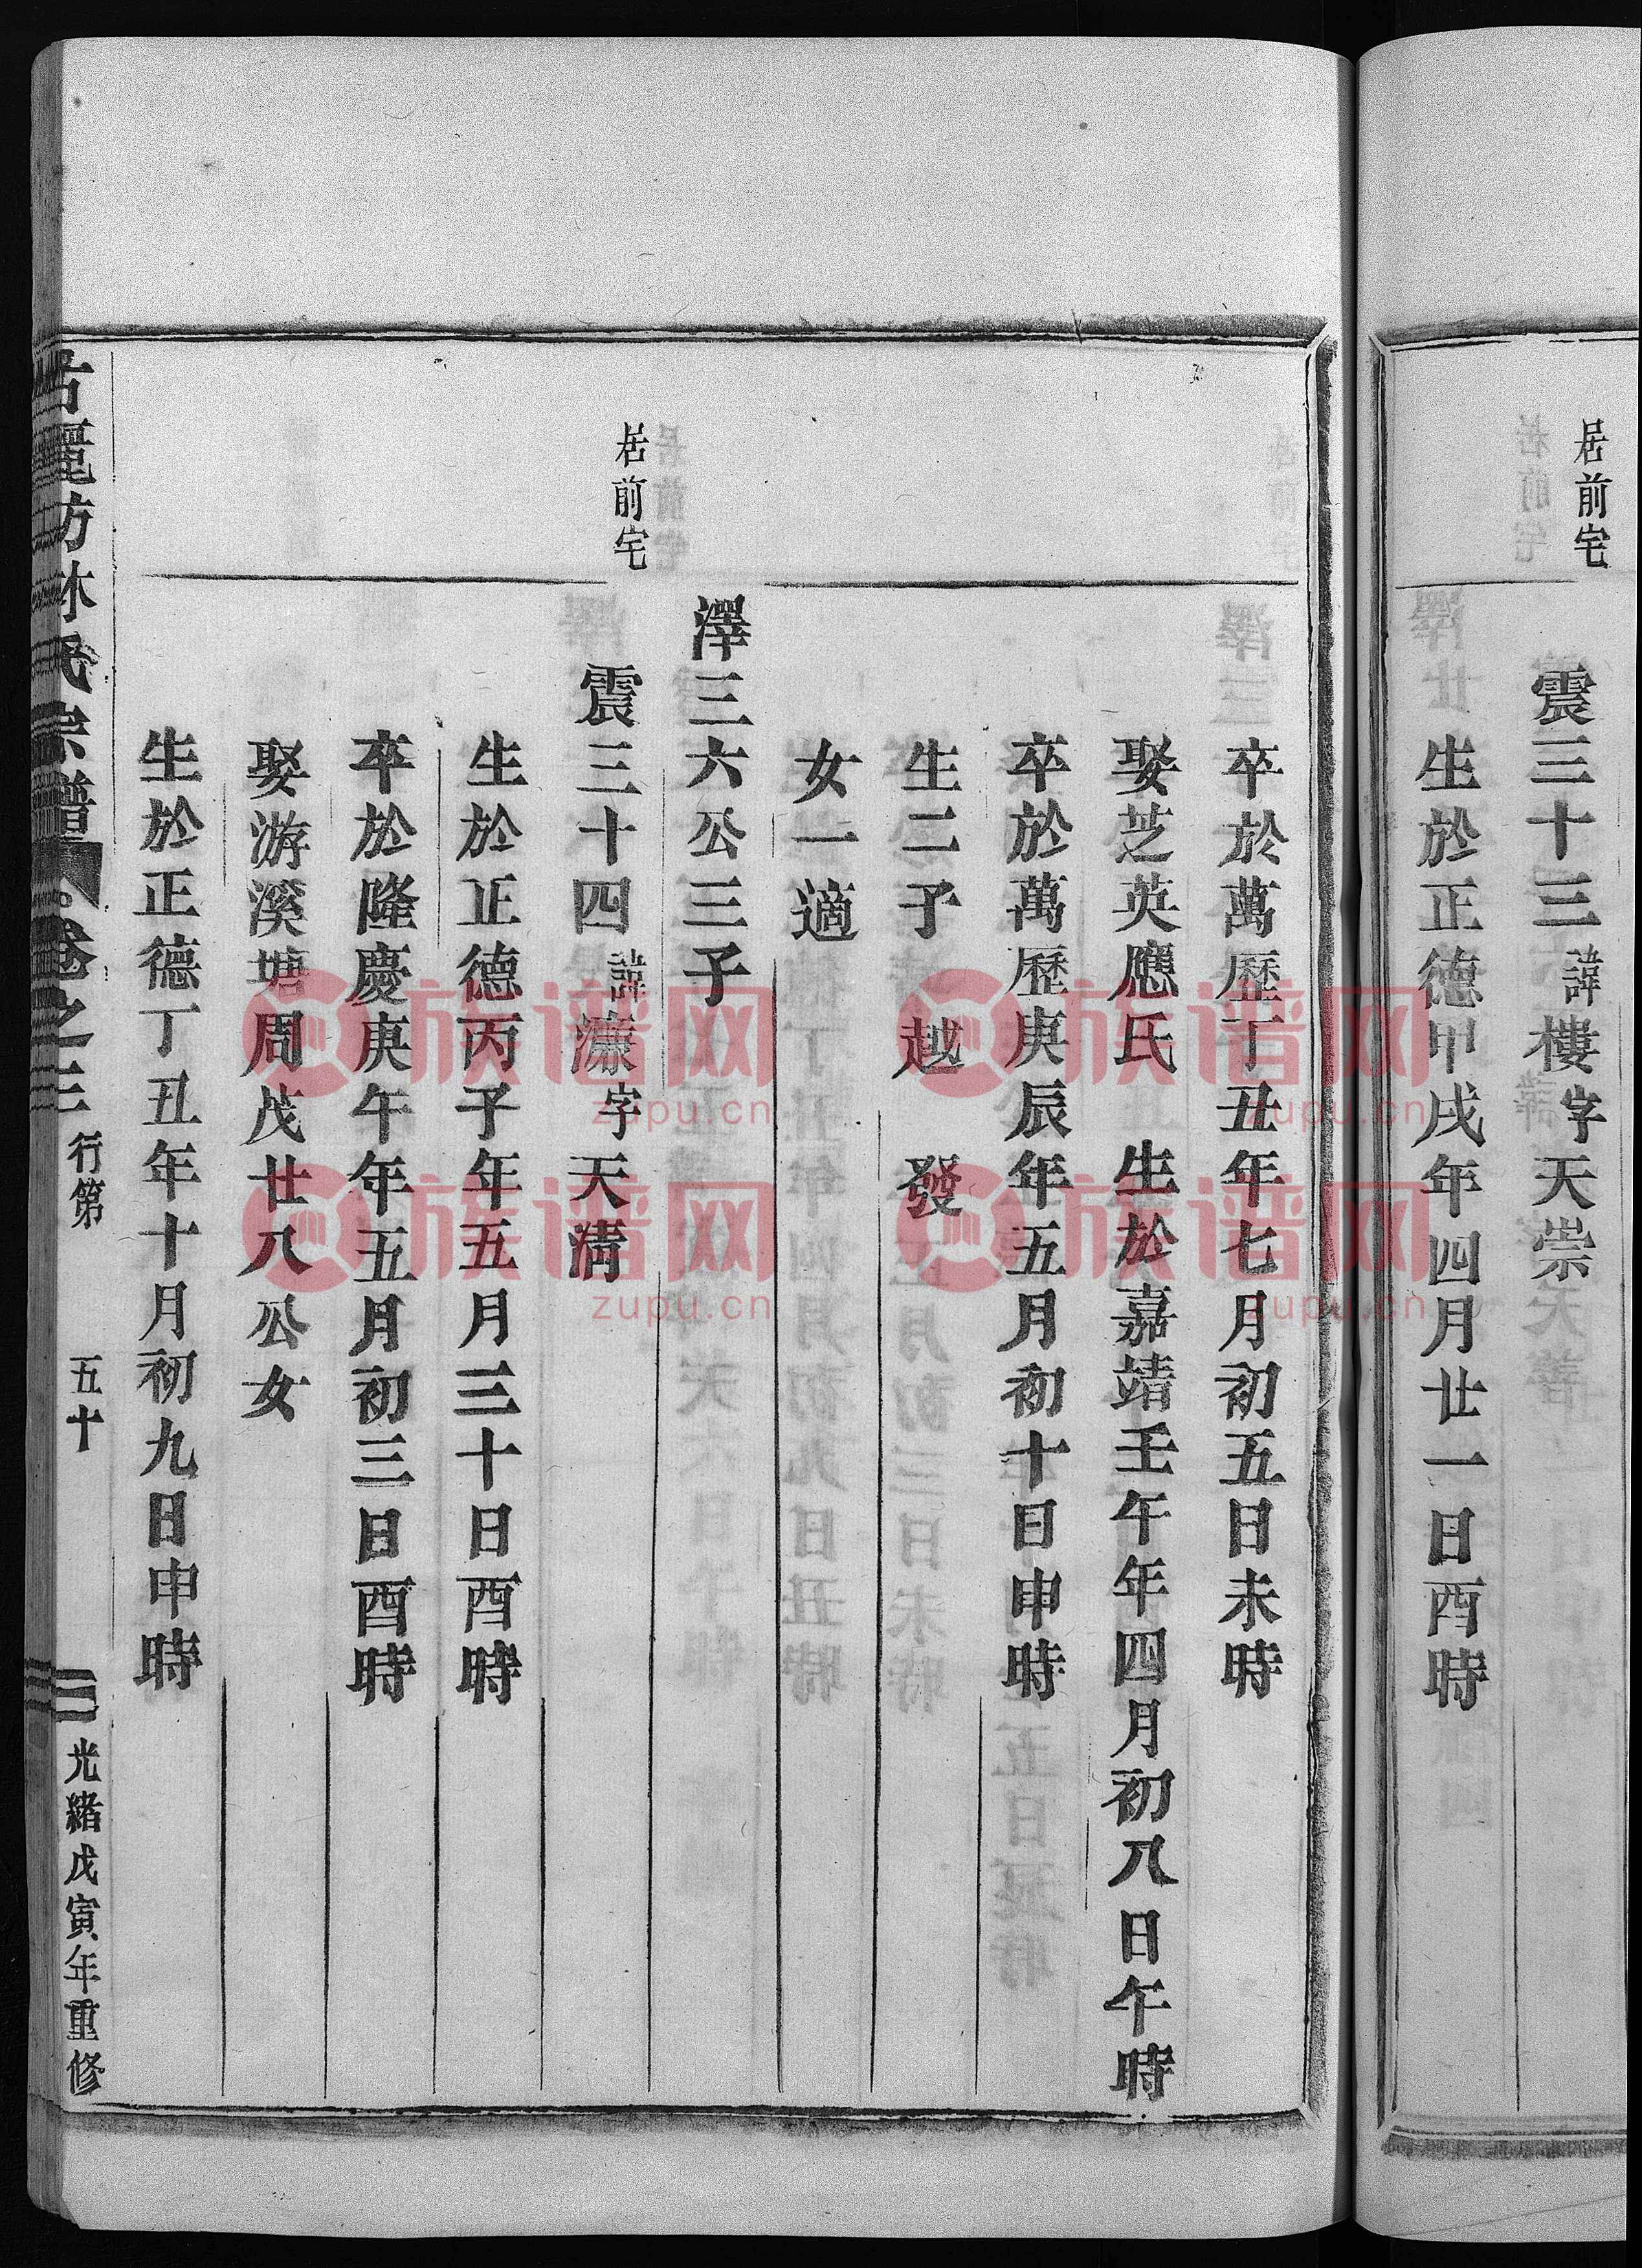 居前宅
震三十三諱樓字天崇
生於正德甲戌年四月廿一日酉時
卒於萬歷丁丑年七月初五日未時
娶芝英應氏 生於嘉靖壬午年四月初八日午時
卒於萬歷庚辰年五月初十日申時
生二子 越 發
女一適
澤三六公三子
居前宅
震三十四諱濂字天清
生於正德丙子年五月三十日酉時
卒於隆慶庚午年五月初三日酉時
娶游溪塘周茂廿八公女
生於正德丁丑年十月初九日申時
古麗坊林氏宗譜 卷之三 行第 五十 光緒戊寅年重修
族谱网
zupu.cn
族谱网
zupu.cn
族谱网
zupu.cn
族谱网
zupu.cn